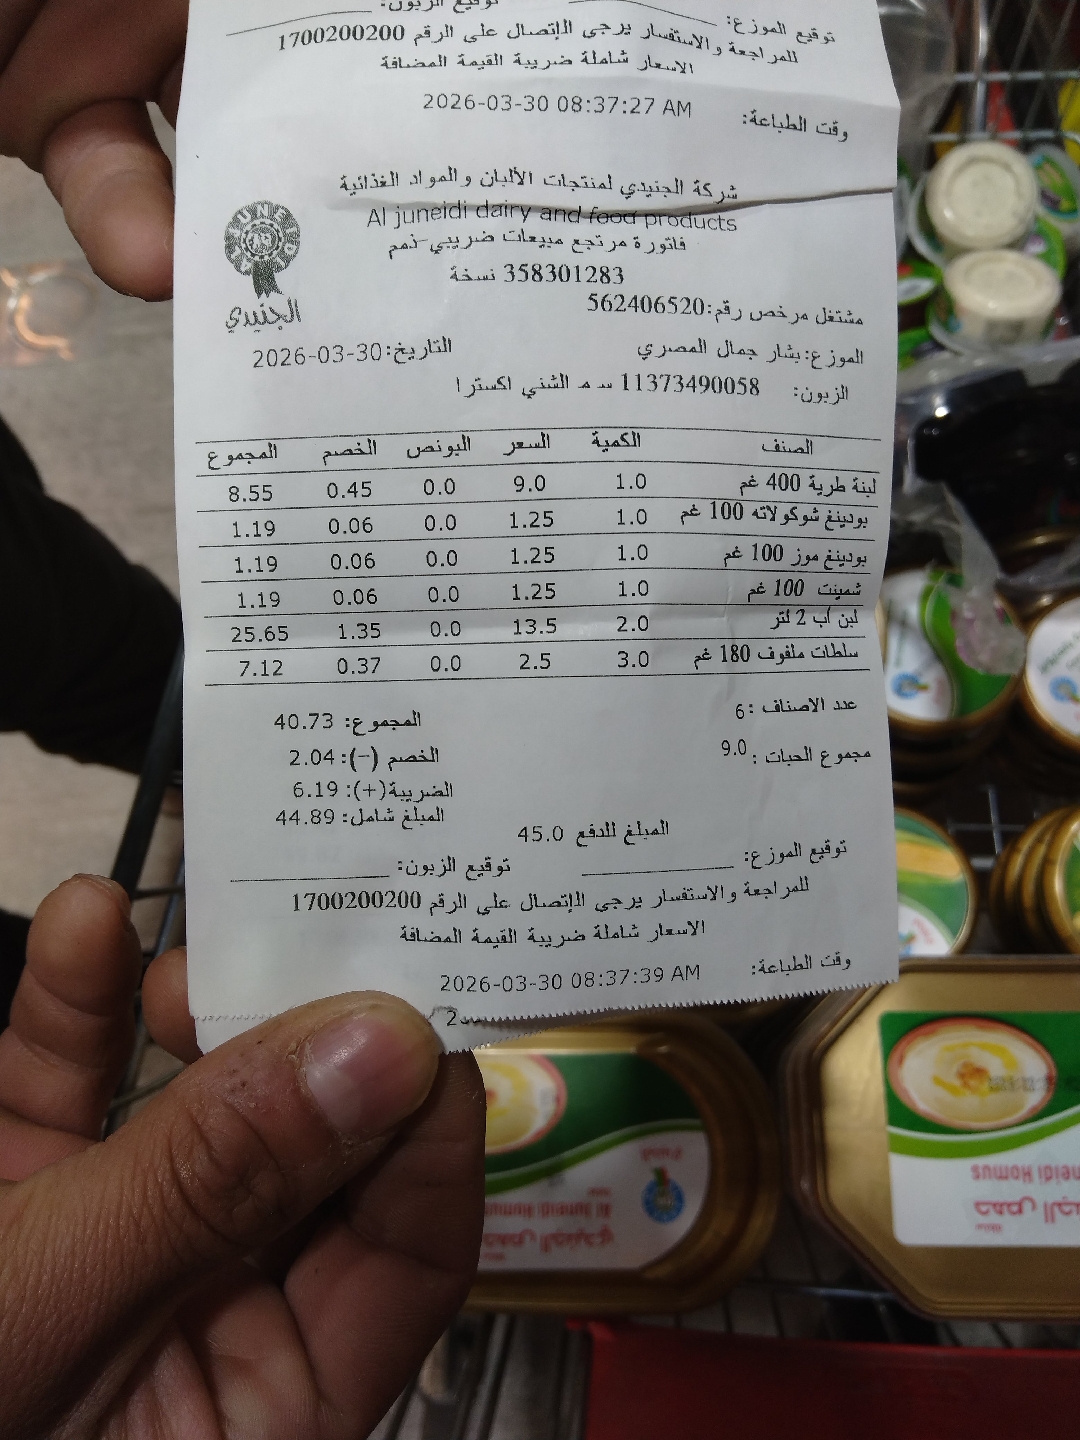 توقيع الموزع: توقيع الزبون:
للمراجعة والاستفسار يرجى الإتصال على الرقم 1700200200
الاسعار شاملة ضريبة القيمة المضافة
وقت الطباعة: 2026-03-30 08:37:27 AM
شركة الجنيدي لمنتجات الألبان والمواد الغذائية
Al juneidi dairy and food products
فاتورة مرتجع مبيعات ضريبي-ذمم
358301283 نسخة
الجنيدي
مشتغل مرخص رقم:562406520
الموزع:بشار جمال المصري التاريخ:30-03-2026
الزبون: 11373490058 س م الشني اكسترا
الصنف الكمية السعر البونص الخصم المجموع
لبنة طرية 400 غم 1.0 9.0 0.0 0.45 8.55
بودينغ شوكولاته 100 غم 1.0 1.25 0.0 0.06 1.19
بودينغ موز 100 غم 1.0 1.25 0.0 0.06 1.19
شمينت 100 غم 1.0 1.25 0.0 0.06 1.19
لبن اب 2 لتر 2.0 13.5 0.0 1.35 25.65
سلطات ملفوف 180 غم 3.0 2.5 0.0 0.37 7.12
عدد الاصناف :6 المجموع: 40.73
مجموع الحبات : 9.0 الخصم (-): 2.04
الضريبة(+): 6.19
المبلغ شامل: 44.89
المبلغ للدفع 45.0
توقيع الموزع: توقيع الزبون:
للمراجعة والاستفسار يرجى الإتصال على الرقم 1700200200
الاسعار شاملة ضريبة القيمة المضافة
وقت الطباعة: 2026-03-30 08:37:39 AM
حمص الجنيدي
Al Juneidi Homus